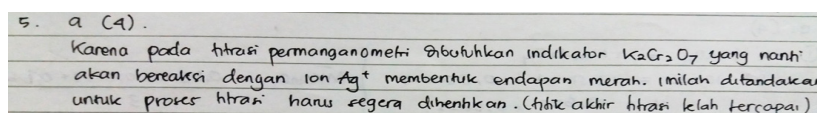 5. a (4).
Karena pada titrasi permanganometri dibutuhkan indikator K2Cr2O7 yang nanti
akan bereaksi dengan ion Ag+ membentuk endapan merah. inilah ditandakan
untuk proses titrasi harus segera dihentikan. (titik akhir titrasi telah tercapai)